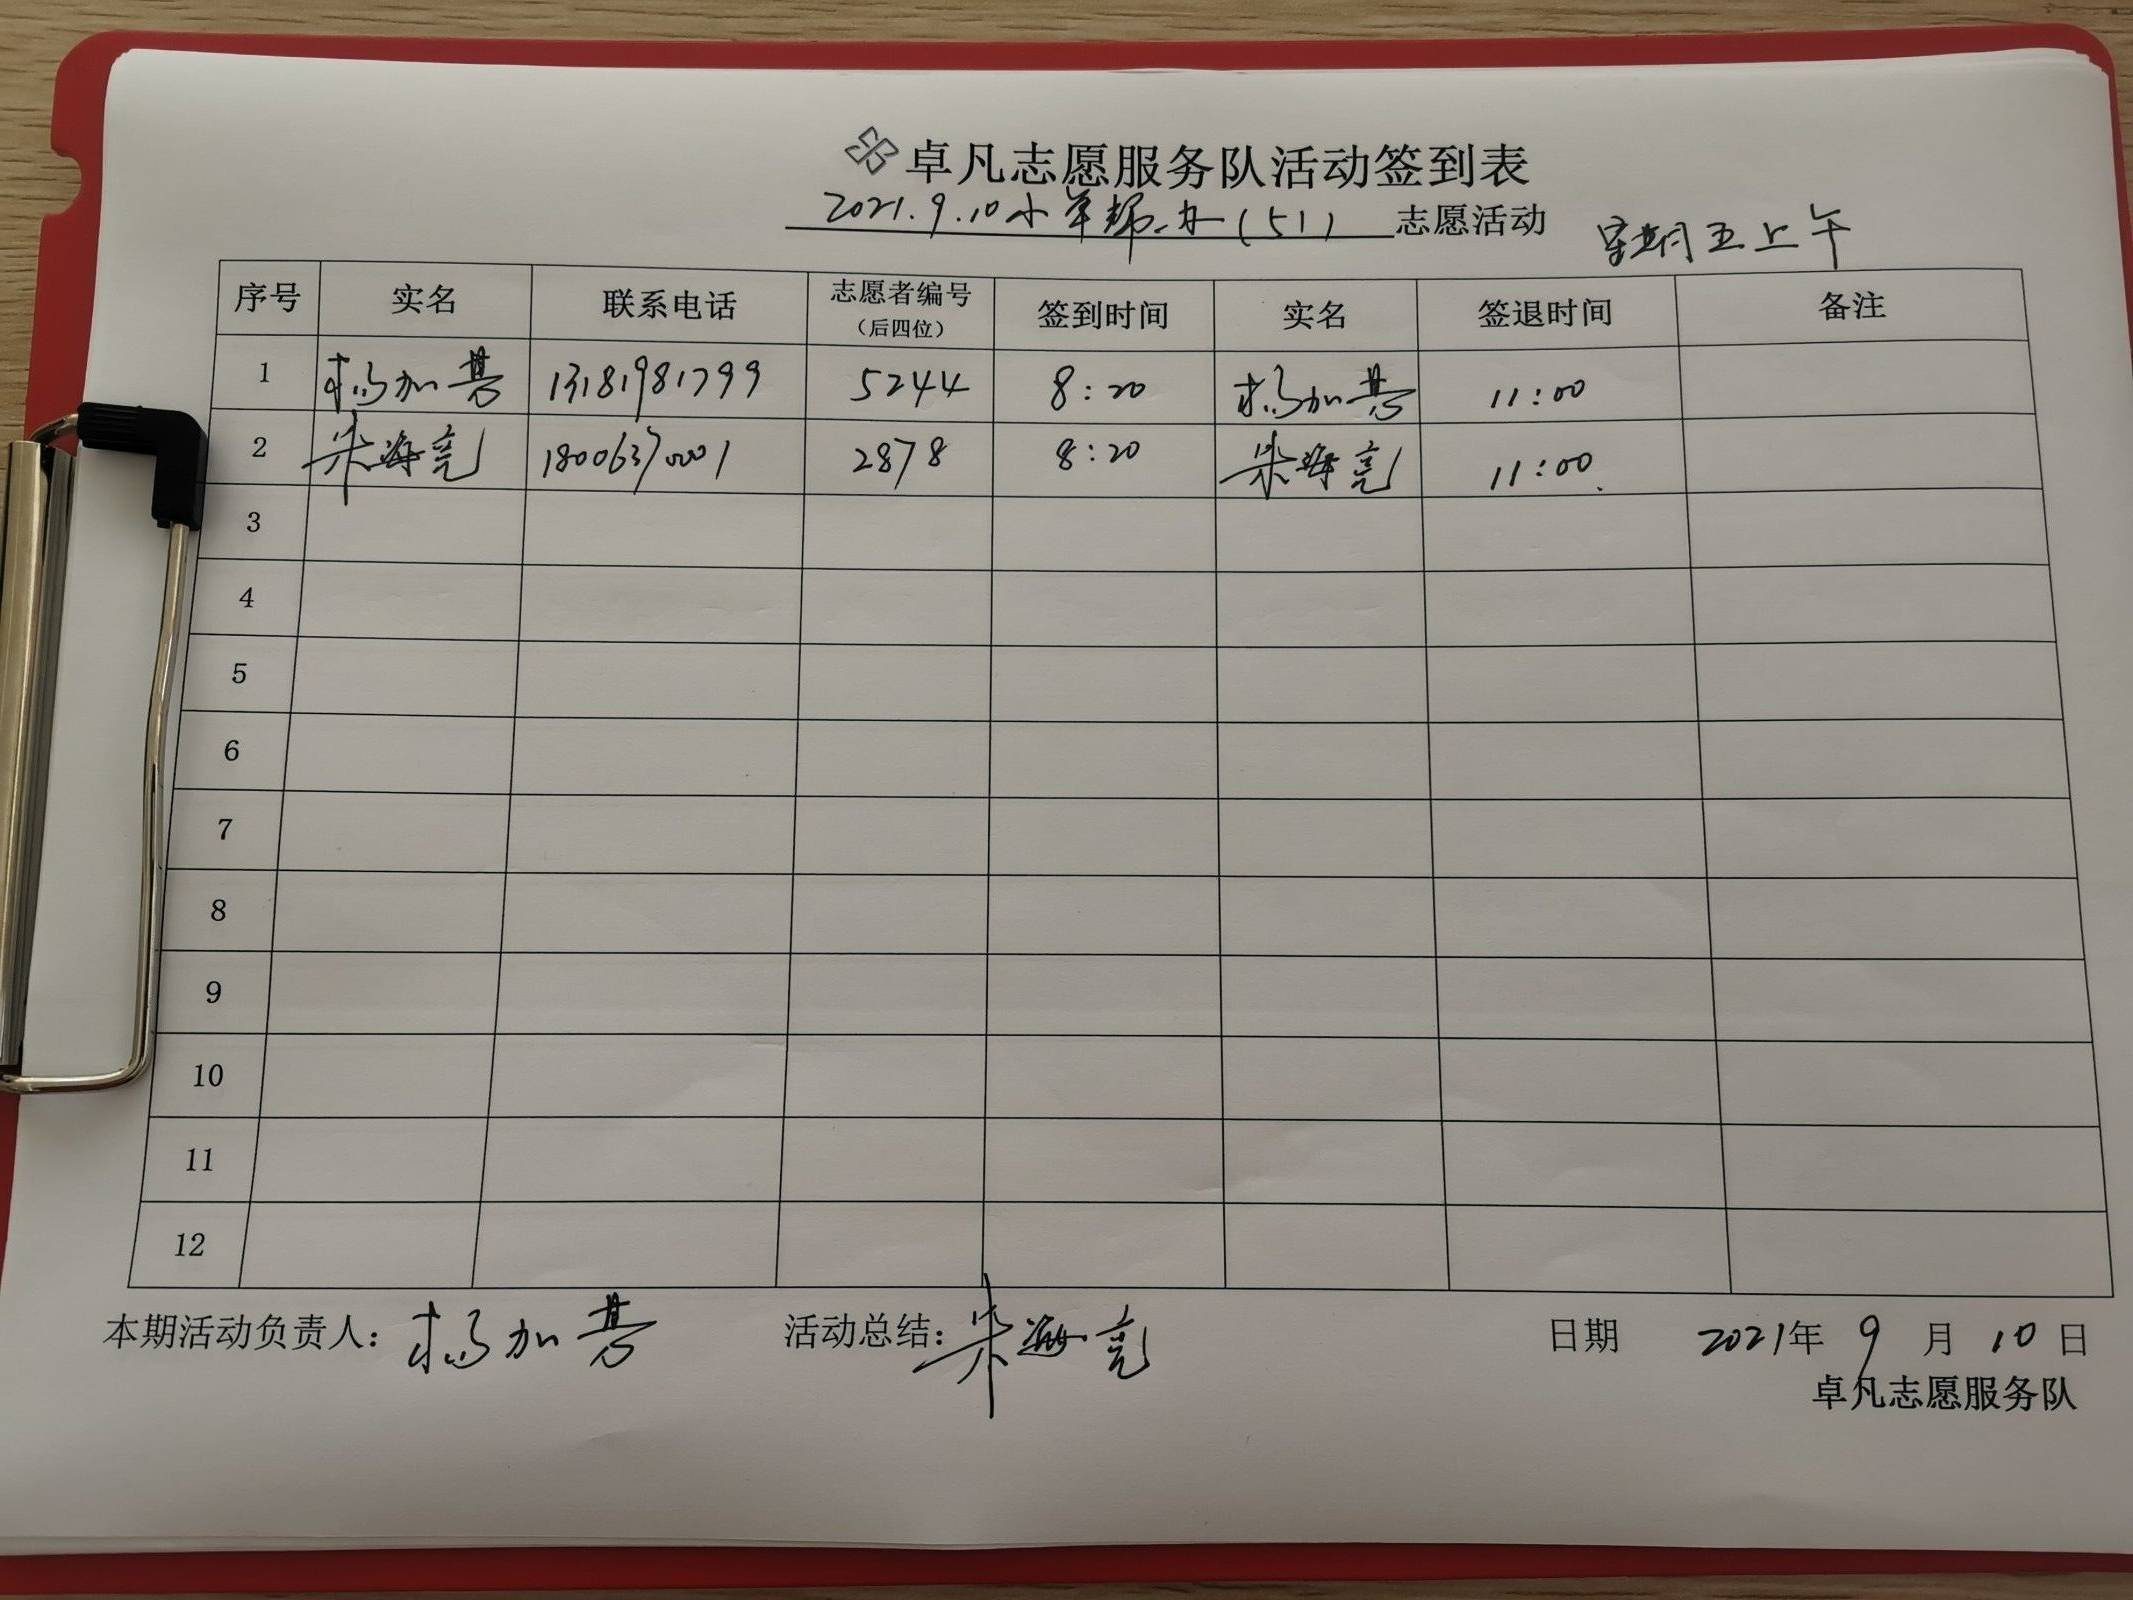 卓凡志愿服务队活动签到表
2021.9.10 小草帮办(51) 志愿活动 星期五上午
序号 实名 联系电话 志愿者编号 (后四位) 签到时间 实名 签退时间 备注
1 杨加 13181981799 5244 8:20 杨加 11:00
2 朱海亮 18006370001 2878 8:20 朱海亮 11:00
3
4
5
6
7
8
9
10
11
12
本期活动负责人: 杨加 活动总结: 朱海亮 日期 2021年 9 月 10 日
卓凡志愿服务队